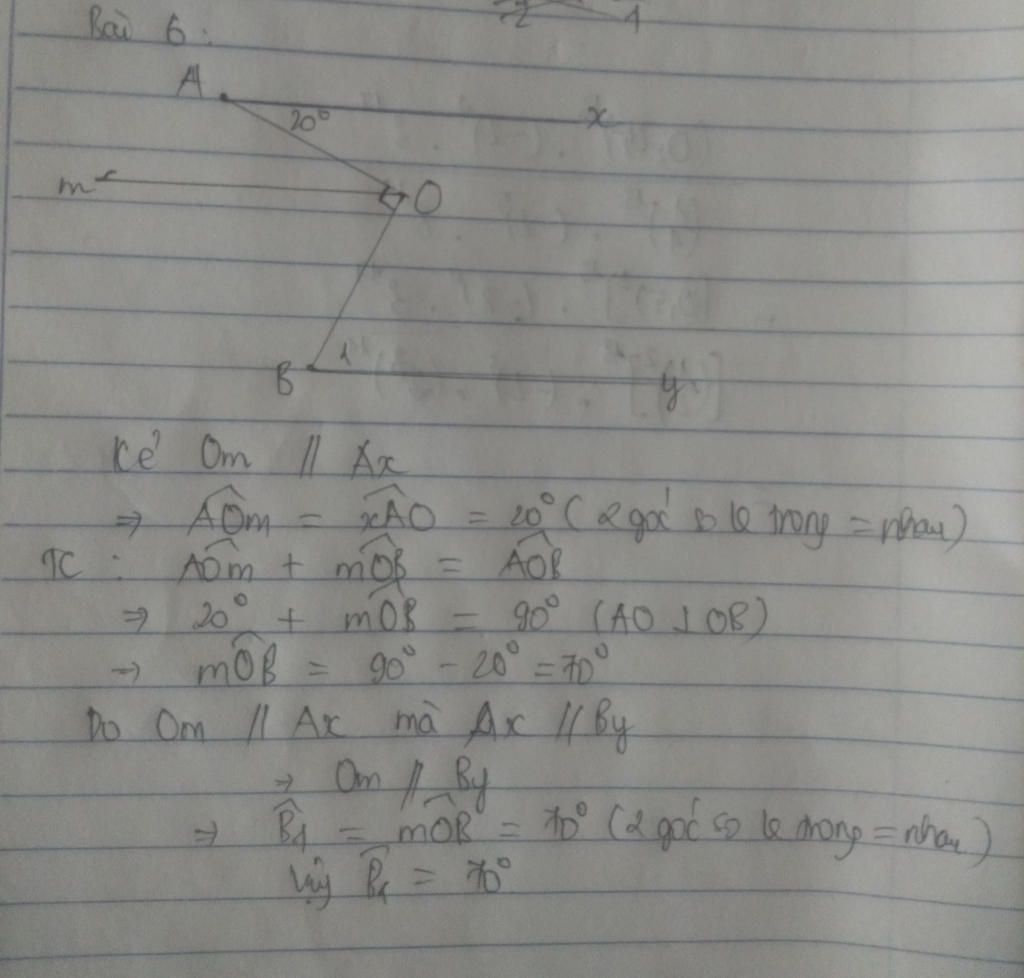 Bài 6:
A
20°
x
m
O
B
1
y
Kẻ Om // Ax
⇒ AÔm = xÂO = 20° (2 góc so le trong = nhau)
TC : AÔm + mÔB = AÔB
⇒ 20° + mÔB = 90° (AO ⊥ OB)
→ mÔB = 90° - 20° = 70°
Do Om // Ax mà Ax // By
→ Om // By
⇒ B̂1 = mÔB = 70° (2 góc so le trong = nhau)
Vậy B̂1 = 70°